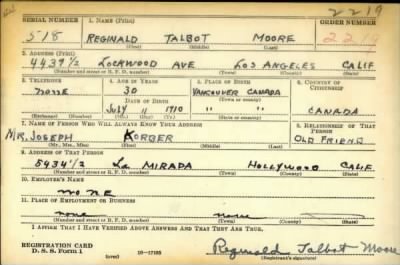 2219
SERIAL NUMBER 1. NAME (Print) ORDER NUMBER
518 REGINALD TALBOT MOORE 2219
(First) (Middle) (Last)
2. ADDRESS (Print)
4439 1/2 LOCKWOOD AVE LOS ANGELES CALIF
(Number and street or R. F. D. number) (Town) (County) (State)
3. TELEPHONE 4. AGE IN YEARS 5. PLACE OF BIRTH 6. COUNTRY OF CITIZENSHIP
none 30 VANCOUVER CANADA
DATE OF BIRTH (Town or county)
JULY 11 1910 " " CANADA
(Exchange) (No.) (Mo.) (Day) (Yr.) (State or country)
7. NAME OF PERSON WHO WILL ALWAYS KNOW YOUR ADDRESS 8. RELATIONSHIP OF THAT PERSON
MR. JOSEPH KORBER OLD FRIEND
(Mr., Mrs., Miss) (First) (Middle) (Last)
9. ADDRESS OF THAT PERSON
5434 1/2 La MIRADA HOLLYWOOD CALIF
(Number and street or R. F. D. number) (Town) (County) (State)
10. EMPLOYER'S NAME
NONE
11. PLACE OF EMPLOYMENT OR BUSINESS
none none
(Number and street or R. F. D. number) (Town) (County) (State)
I AFFIRM THAT I HAVE VERIFIED ABOVE ANSWERS AND THAT THEY ARE TRUE.
REGISTRATION CARD
D. S. S. Form 1 (over) 16—17105 Reginald Talbot Moore
(Registrant's signature)